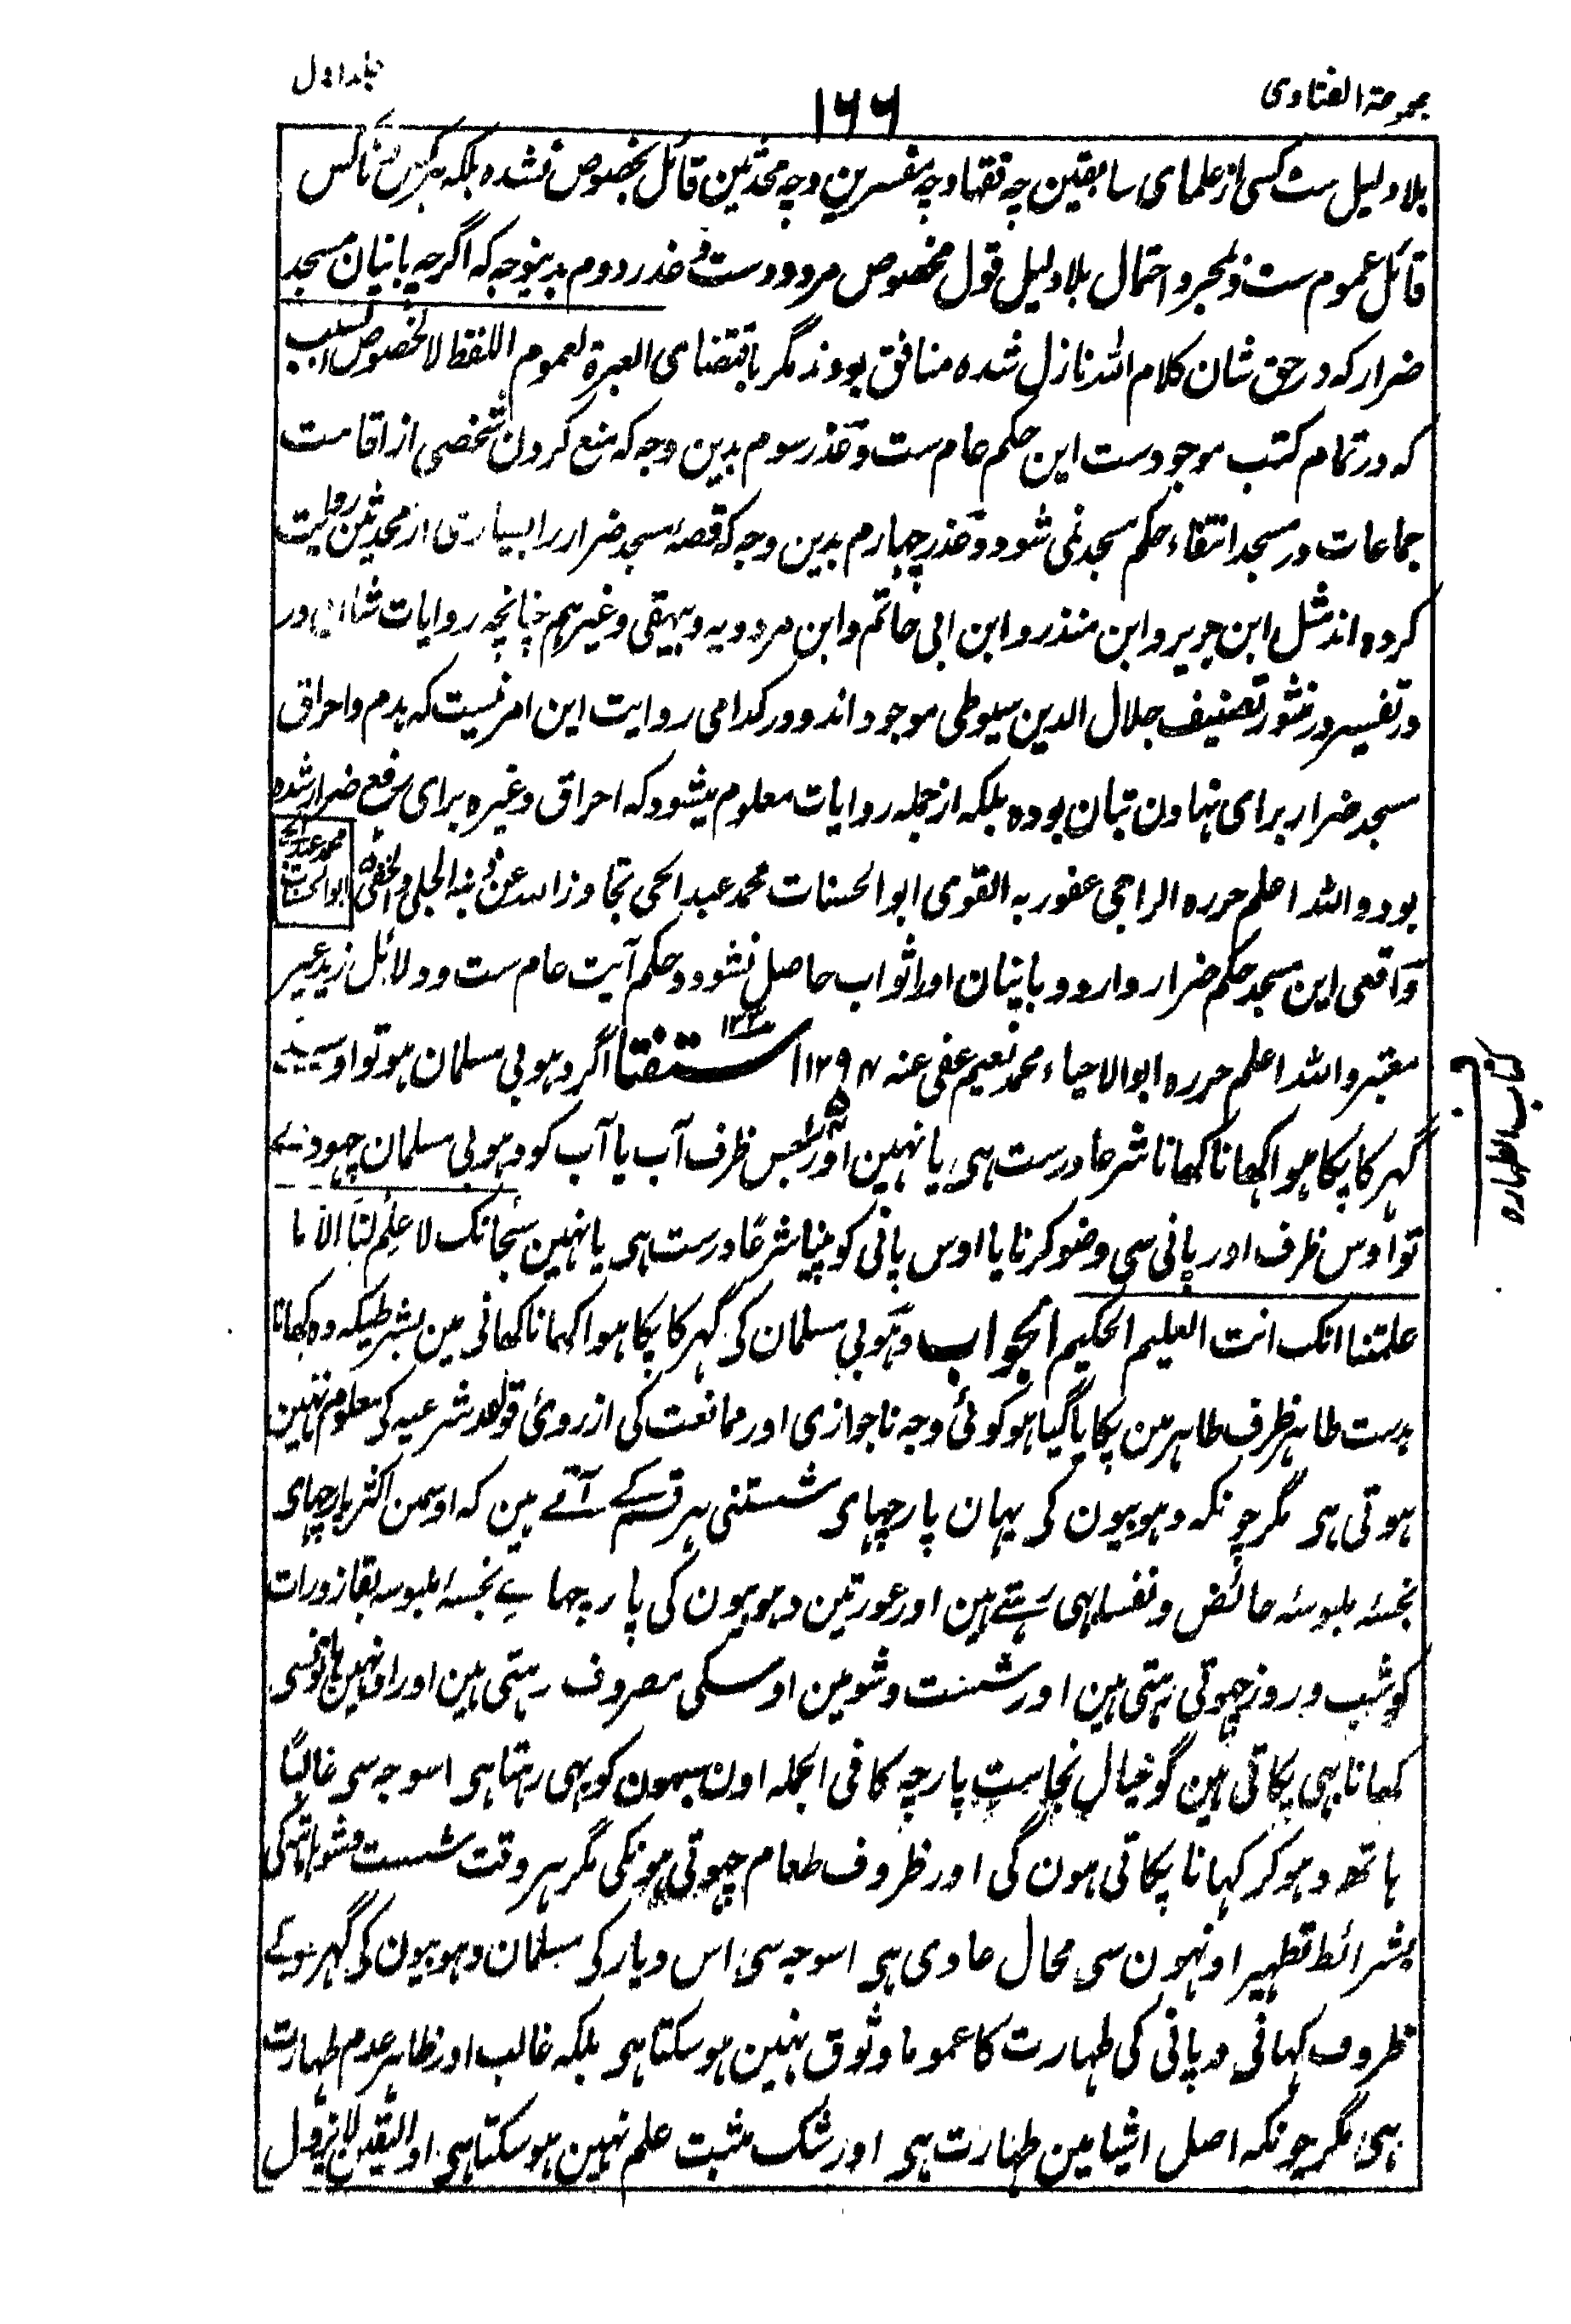 مجموعۃ الفتاوی
۱۶۶
جلد اول
بلا دلیل ست کسی از علمای سابقین چہ فقہا و چہ مفسرین و چہ محدثین قائل بخصوص نشدہ بلکہ ہر کس و ناکس
قائل عموم ست و مجرد احتمال بلا دلیل قول مخصوص مردود ست و عذر دوم بدینوجہ کہ اگرچہ بانیان مسجد
ضرار کہ در حق شان کلام اللہ نازل شدہ منافق بودند مگر باقتضای العبرۃ لعموم اللفظ لا لخصوص السبب
کہ در تمام کتب موجود ست این حکم عام ست و عذر سوم بدین وجہ کہ منع کردن شخصی از اقامت
جماعات در مسجد انتفاء حکم مسجد نمی شود و عذر چہارم بدین وجہ کہ قصۂ مسجد ضرار را بسیاری از محدثین روایت
کردہ اند مثل ابن جریر و ابن منذر و ابن ابی حاتم و ابن مردویہ و بیہقی و غیرہم چنانچہ روایات شان در
در تفسیر در منثور تصنیف جلال الدین سیوطی موجود اند و در کدامی روایت این امر نیست کہ ہدم و احراق
مسجد ضرار برای تہاون بتان بودہ بلکہ از جملہ روایات معلوم میشود کہ احراق و غیرہ برای رفع ضرار شدہ
بود واللہ اعلم حررہ الراجی عفو ربہ القوی ابو الحسنات محمد عبد الحی تجاوز اللہ عن ذنبہ الجلی والخفی
محمد عبد الحی
ابو الحسنات
واقعی این مسجد حکم ضرار دارد و بانیان او را ثواب حاصل نشود و حکم آیت عام ست و دلائل زید غیر
معتبر واللہ اعلم حررہ ابو الاحیاء محمد نعیم عفی عنہ ۱۲۹۴ استفتا اگر دھوبی مسلمان ہو تو اوسکے
گہر کا پکا ہوا کھانا کھانا شرعا درست ہی یا نہین اور جس ظرف آب یا آب کو دہوبی مسلمان چہودے
تو اوس ظرف اور پانی سی وضو کرنا یا اوس پانی کو پینا شرعًا درست ہی یا نہین سبحانک لا علم لنا الا ما
علمتنا انک انت العلیم الحکیم الجواب دہوبی مسلمان کی گہر کا پکا ہوا کہانا کھانی مین بشرطیکہ وہ کھانا
بدست طاہر ظرف طاہر مین پکایا گیا ہو کوئی وجہ ناجوازی اور ممانعت کی از روئ قواعد شرعیہ کی معلوم نہین
ہوتی ہی مگر چونکہ دہوبیون کی یہان پارچہای شستنی ہر قسم کے آتے ہین کہ اوسمین اکثر پارچہای
نجسہ ملبوسہ حائض و نفسا بھی رہتے ہین اور عورتین دہوبیون کی پارچہاے نجسہ ملبوسہ بقاذورات
کو شب و روز چہوتی رہتی ہین اور شست و شو مین اوسکی مصروف رہتی ہین اور اونہین ہاتھونسی
کھانا بہی پکاتی ہین گو خیال نجاست پارچہ کا فی الجملہ اون سبھون کو بہی رہتا ہی اسوجہ سی غالبًا
ہاتھ دہو کر کہانا پکاتی ہون گی اور ظروف طعام چہوتی ہونگی مگر ہر وقت شست و شو ہاتہہ کی
بشرائط تطہیر اونہون سی محال عادی ہی اسوجہ سی اس دیار کی مسلمان دہوبیون کی گہر ہوئے
ظروف کہانی و پانی کی طہارت کا عموما وثوق نہین ہو سکتا ہی بلکہ غالب اور ظاہر عدم طہارت
ہی مگر چونکہ اصل اشیا مین طہارت ہی اور شک مثبت علم نہین ہو سکتا ہی اور الیقین لا یزول
کتاب الطہارہ